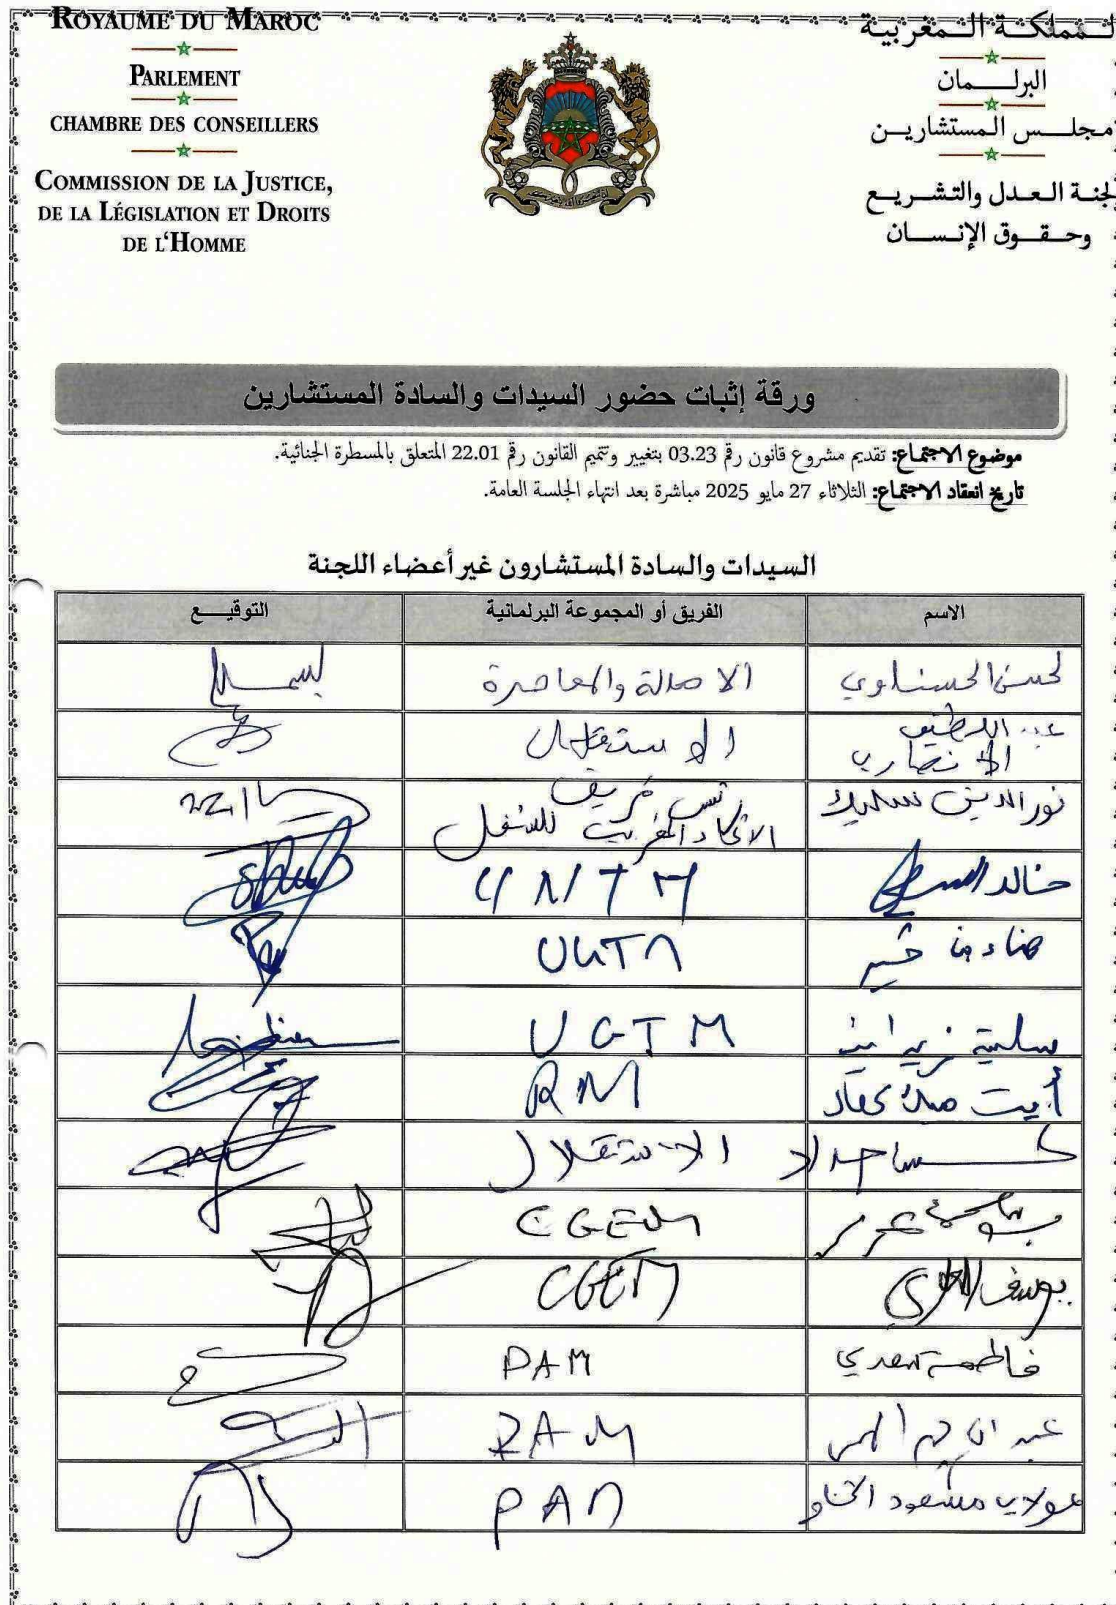 ROYAUME DU MAROC
PARLEMENT
CHAMBRE DES CONSEILLERS
COMMISSION DE LA JUSTICE,
DE LA LÉGISLATION ET DROITS
DE L'HOMME
المملكة المغربية
البرلمان
مجلس المستشارين
لجنة العدل والتشريع
وحقوق الإنسان
ورقة إثبات حضور السيدات والسادة المستشارين
موضوع الاجتماع: تقديم مشروع قانون رقم 03.23 بتغيير وتتميم القانون رقم 22.01 المتعلق بالمسطرة الجنائية.
تاريخ انعقاد الاجتماع: الثلاثاء 27 مايو 2025 مباشرة بعد انتهاء الجلسة العامة.
السيدات والسادة المستشارون غير أعضاء اللجنة
الاسم الفريق أو المجموعة البرلمانية التوقيع
لحسن الحسناوي الاصالة والمعاصرة
عبد اللطيف
الانصاري الاستقلال
نور الدين سليك رئيس فريق
الاتحاد المغربي للشغل
خالد السطي UNTM
هناء بن خير UGTM
UGTM
أيت RM
الاستقلال
CGEM
يوسف العلوي CGEM
فاطمة سعدي PAM
عبد PAM
مولاي مسعود PAM